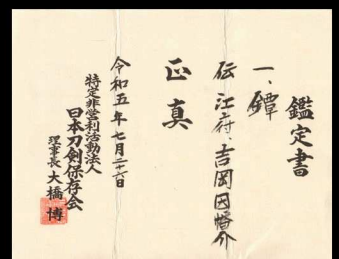 鑑定書
一、鐔
伝 江府、吉岡因幡介
正真
令和五年七月二十六日
特定非営利活動法人
日本刀剣保存会
理事長 大橋 博